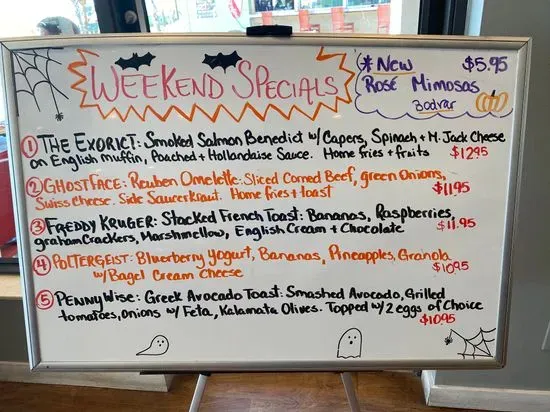 WEEKEND SPECIALS
* New $5.95
Rosé Mimosas
Bodvar
1 THE EXORICT: Smoked Salmon Benedict w/ Capers, Spinach + M. Jack Cheese
on English Muffin, Poached + Hollandaise Sauce. Home fries + fruits $12.95
2 GHOSTFACE: Reuben Omelette: Sliced Corned Beef, green Onions,
Swiss cheese. Side Sauerkraut. Home fries + toast $11.95
3 FREDDY KRUGER: Stacked French Toast: Bananas, Raspberries,
graham Crackers, Marshmellow, English Cream + Chocolate $11.95
4 POLTERGEIST: Bluerberry Yogurt, Bananas, Pineapples, Granola
w/ Bagel Cream Cheese $10.95
5 PENNYWISE: Greek Avocado Toast: Smashed Avocado, Grilled
tomatoes, onions w/ Feta, Kalamata Olives. Topped w/ 2 eggs of Choice
$10.95